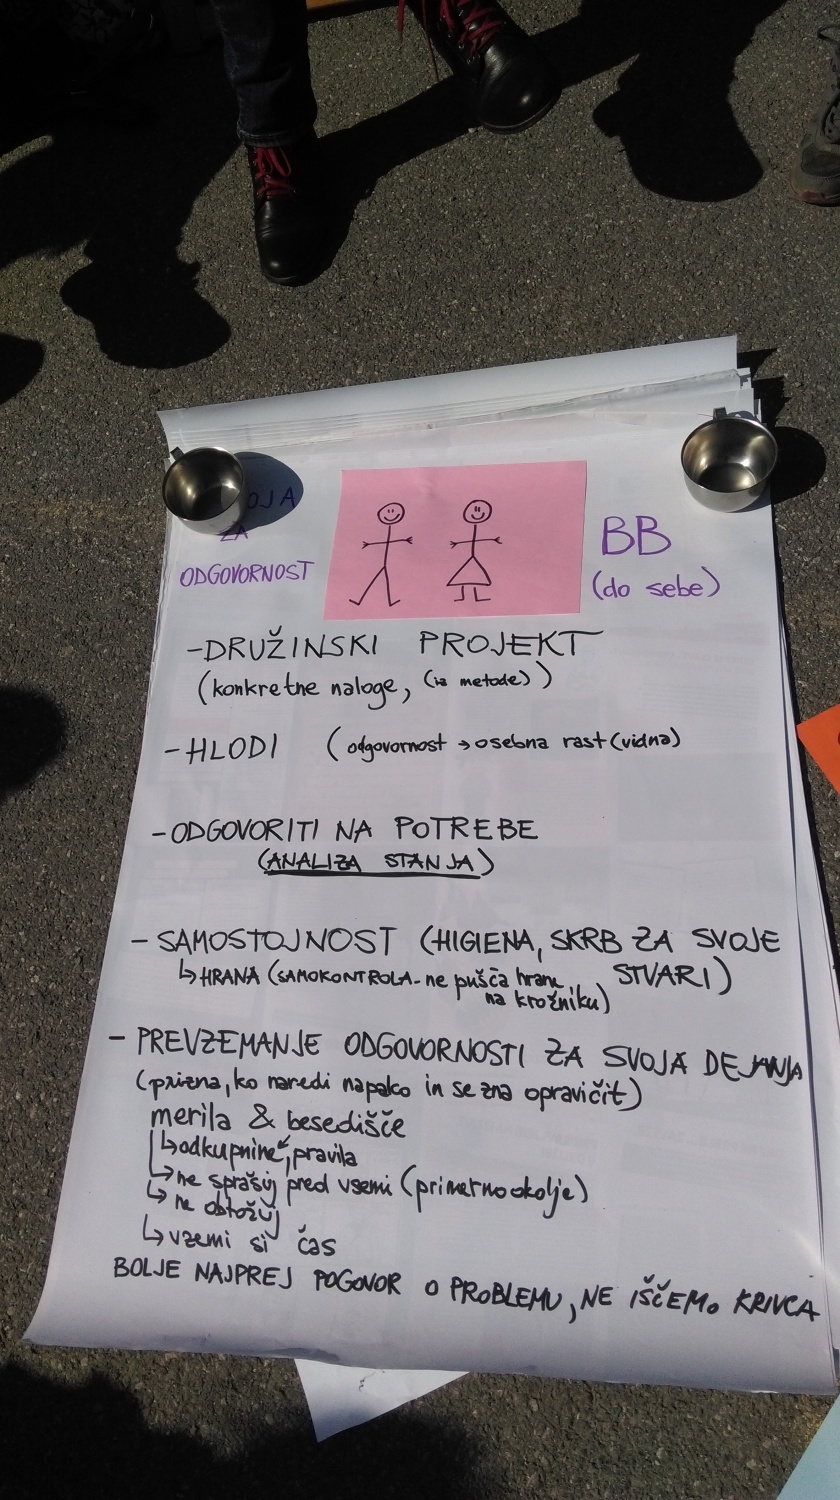 ZA
ODGOVORNOST
BB
(do sebe)
-DRUŽINSKI PROJEKT
(konkretne naloge, (iz metode))
-HLODI (odgovornost → osebna rast (vidna)
-ODGOVORITI NA POTREBE
(ANALIZA STANJA)
- SAMOSTOJNOST (HIGIENA, SKRB ZA SVOJE
STVARI)
↳ HRANA (SAMOKONTROLA - ne pušča hrane
na krožniku)
- PREVZEMANJE ODGOVORNOSTI ZA SVOJA DEJANJA
(prizna, ko naredi napako in se zna opravičit)
merila & besedišče
↳ odkupnine, pravila
↳ ne sprašuj pred vsemi (primerno okolje)
↳ ne obtožuj
↳ vzemi si čas
BOLJE NAJPREJ POGOVOR O PROBLEMU, NE IŠČEMO KRIVCA